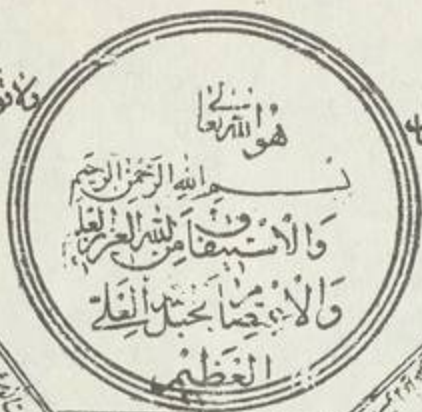 هو الله تعالى
بسم الله الرحمن الرحيم
وَالْاسْتِيفاق مِن الله العزيز
وَالْاعتصام بحبل الله العَلِيّ
العَظيم